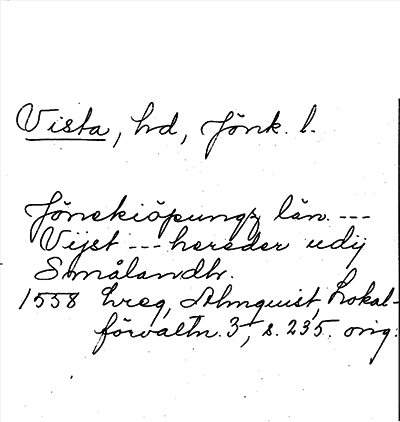 Vista, hd, Jönk. l.
Jönekiöpungz län. ---
Vijst --- hereder udij
Smålandh.
1558 Lreg, Almquist, Lokal-
förvaltn. 3, s. 235. orig.